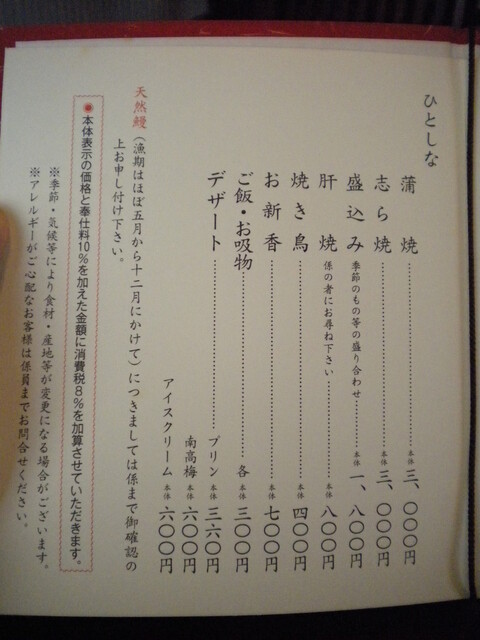 ひとしな
蒲焼 本体 三、〇〇〇円
志ら焼 本体 三、〇〇〇円
盛込み 季節のもの等の盛り合わせ 本体 一、八〇〇円
肝焼 係の者にお尋ね下さい 本体 八〇〇円
焼き鳥 本体 四〇〇円
お新香 本体 七〇〇円
ご飯・お吸物 各 本体 三〇〇円
デザート プリン 本体 三六〇円
南高梅 本体 六〇〇円
アイスクリーム 本体 六〇〇円
天然鰻(漁期はほぼ五月から十二月にかけて)につきましては係まで御確認の
上お申し付け下さい。
◉本体表示の価格と奉仕料10%を加えた金額に消費税8%を加算させていただきます。
※季節・気候等により食材・産地等が変更になる場合がございます。
※アレルギーがご心配なお客様は係員までお問合せください。